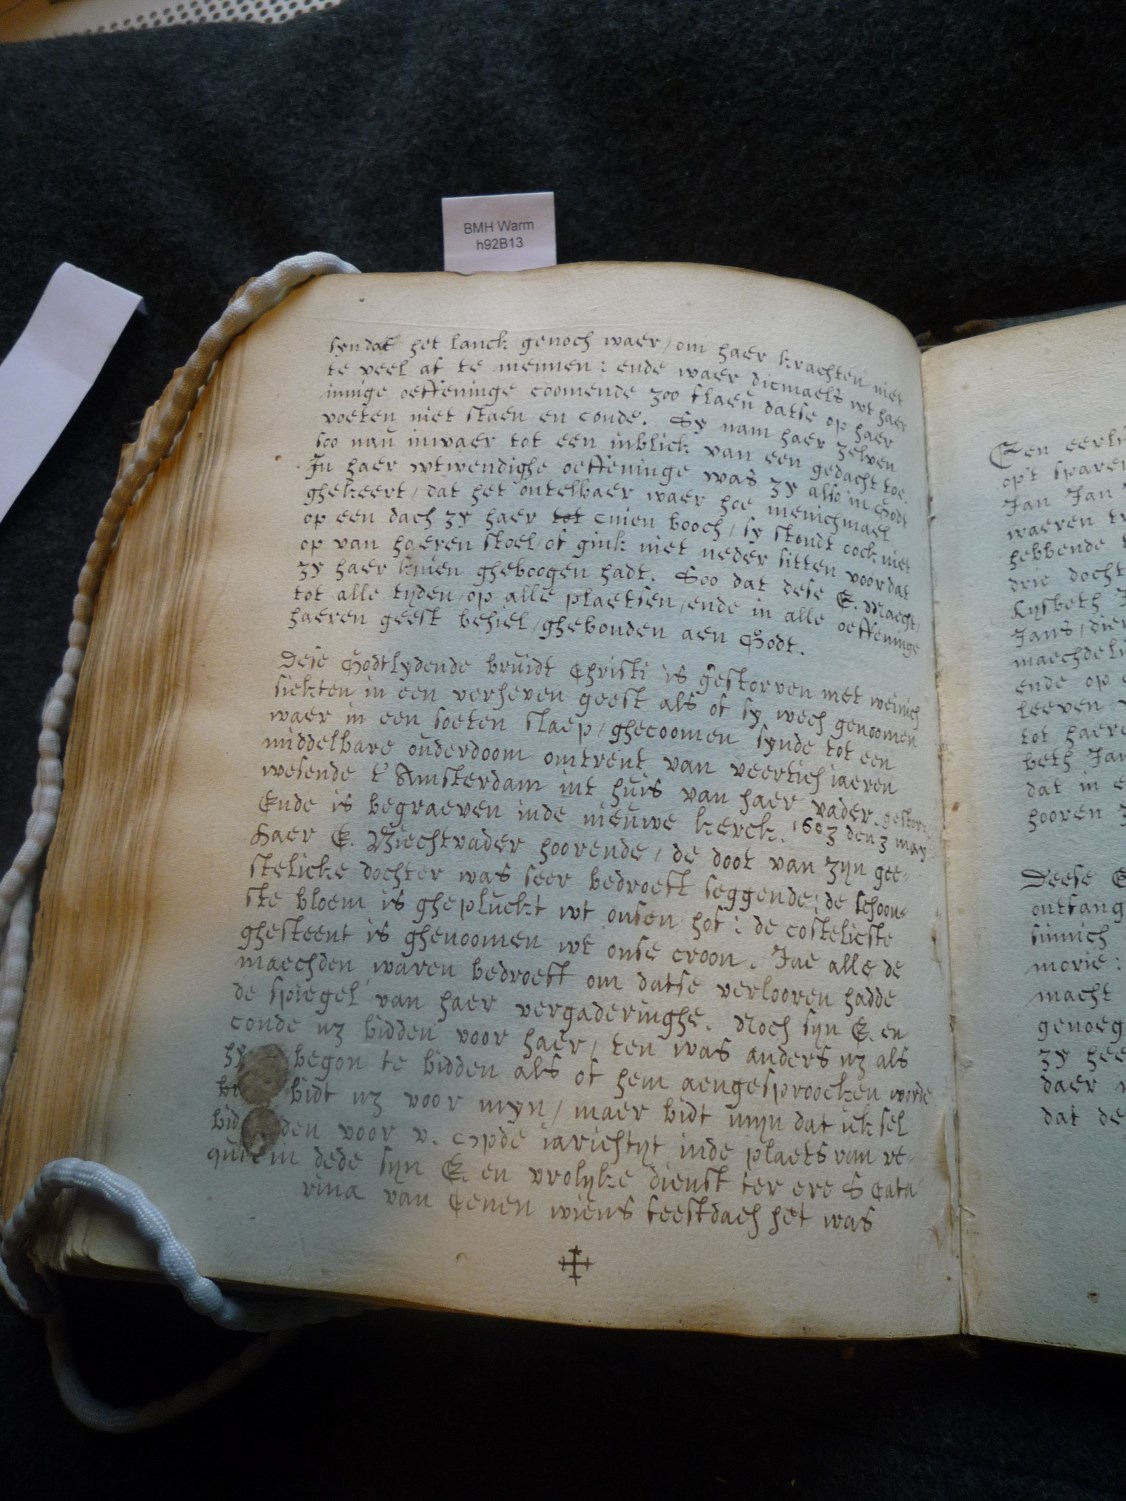 BMH Warm
h92B13
syn dat het lanck genoch waer / om haer krachten niet
te veel af te nemen : ende waer dicmaels wt haer
innige oeffeninge coomende zoo flaeu datse op haer
voeten niet staen en conde. Sy nam haer zelven
soo nau inwaer tot een inblick van een gedacht toe.
In haer wtwendighe oeffeninge was zy also in Godt
ghekeert / dat het ontelbaer waer hoe menichmael
op een dach zy haer cnien booch / sy stondt oock niet
op van haeren stoel / of gink niet neder sitten voor dat
zy haer knien gheboogen hadt. Soo dat dese E. Maeght /
tot alle tyden / op alle plaetsen / ende in alle oeffeninge
haeren geest behiel / ghebonden aen Godt.
Dese Godtlydende bruidt Christi is gestorven met weinich
siekten in een verheven geest als of sy wech genoomen
waer in een soeten slaep / ghecoomen synde tot een
middelbare ouderdoom omtrent van veertich iaeren
wesende t' Amsterdam int huis van haer vader. gestor.
Ende is begraeven inde nieuwe kerck. 1603 den 3 may
Haer E. Biechtvader hoorende / de doot van zyn gee-
stelicke dochter was seer bedroeft seggende : de schoon-
ste bloem is ghepluckt wt onsen hof : de costelicste
ghesteent is ghenoomen wt onse croon. Jae alle de
maechden waren bedroeft om datse verlooren hadde
de spiegel van haer vergaderinghe. Noch syn E. en
conde nz bidden voor haer / ten was anders nz als
hy begon te bidden als of hem aengesproocken wirde
bidt nz voor myn / maer bidt myn dat ick sel
bidden voor v. Opde iarichtyt inde plaets van re-
quiem dede syn E. en vrolyke dienst ter ere S Cata
rina van Cenen wiens feestdach het was
Een eerli
opt sparen
Jan Jan
waeren
hebbende
drie docht
Lysbeth
Jans / die
maechdeli
ende op
leeven
tot haere
beth Jan
dat in e
hooren
Deese E
ontfang
sinnich
morie :
macht
genoeg
zy hee
daer
dat de